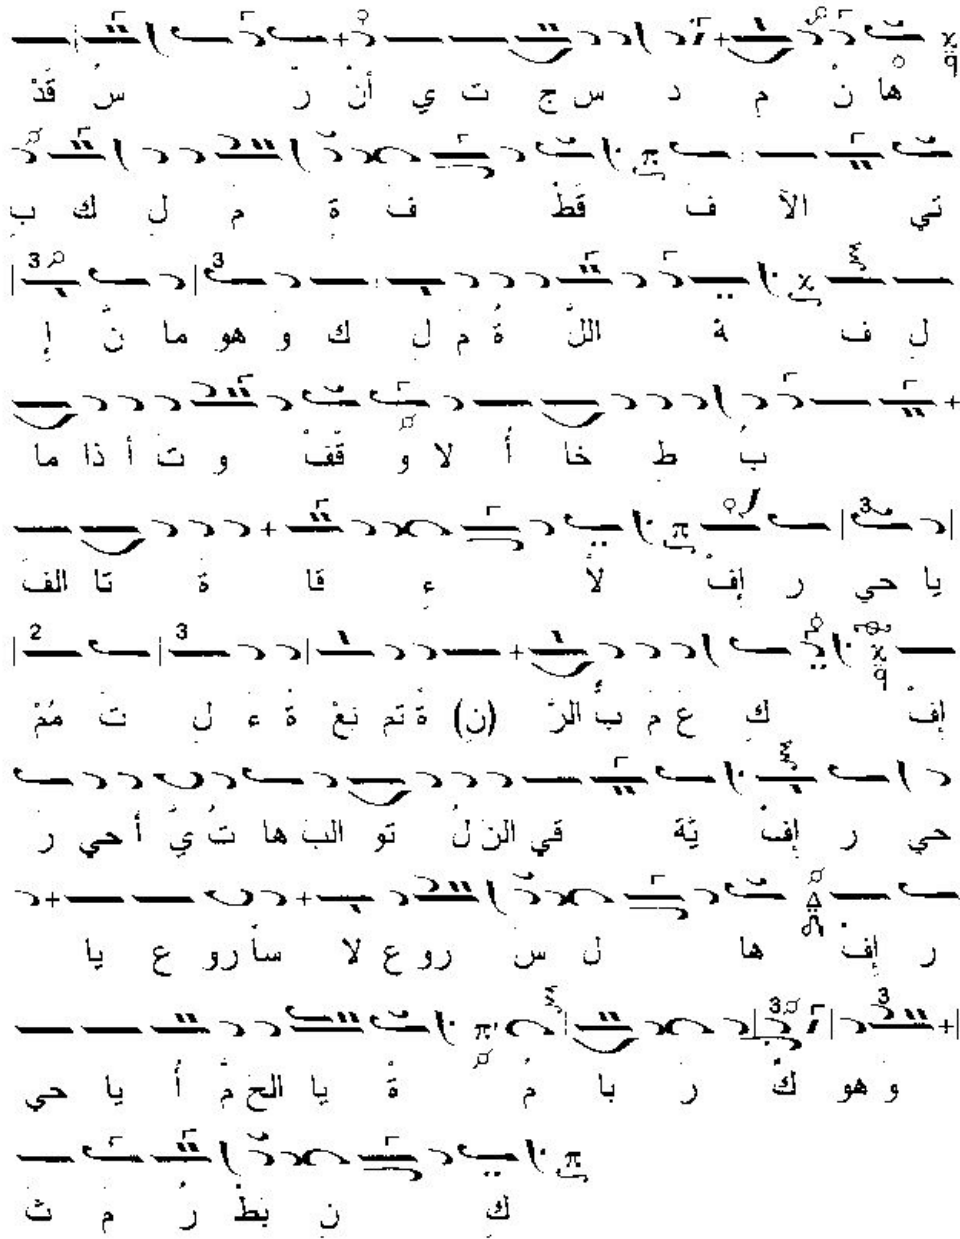 قَدْ سُ رَّ أنْ ي ت ج س د مِ نْ ها
بِ ك لِ مَ ةِ فَ قَطْ فَ الآ تي
إِ نَّ ما هو وَ ك لِ مَ ةُ اللَّ ة ف لِ
ما ذا أ تَ و قَّفْ و لا أُ خا طِ بُ
الفَ تا ةَ قا ءِ لاً إفْ ر حي يا
مُمْ تَ لِ ءَ ةً نِعْ مَ ةً (نِ) الرَّ بُّ مَ عَ كِ إفْ
رَ حي أَ يَّ تُ ها البَ تو لُ النَ قي يَّة إفْ ر حي
يا ع رو ساً لا ع رو سَ ل ها إفْ ر
حي يا أُ مَّ الحَ يا ةِ مُ با رَ كٌ هو وَ
ثَ مَ رُ بَطْ نِ كِ